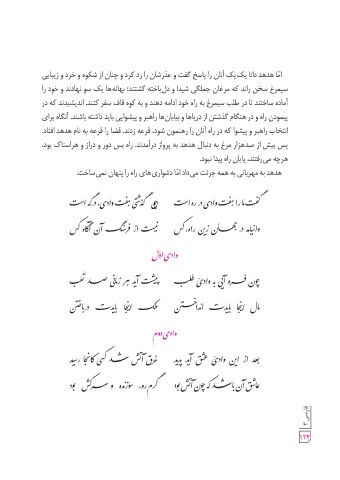 امّا هدهد دانا یک یک آنان را پاسخ گفت و عذرشان را رد کرد و چنان از شکوه و خرد و زیبایی
سیمرغ سخن راند که مرغان جملگی شیدا و دل‌باخته گشتند؛ بهانه‌ها یک سو نهادند و خود را
آماده ساختند تا در طلب سیمرغ به راه خود ادامه دهند و به کوه قاف سفر کنند. اندیشیدند که در
پیمودن راه و در هنگام گذشتن از دریاها و بیابان‌ها راهبر و پیشوایی باید داشته باشند. آنگاه برای
انتخاب راهبر و پیشوا که در راه آنان را رهنمون شود، قرعه زدند. قضا را قرعه به نام هدهد افتاد.
پس بیش از صدهزار مرغ به دنبال هدهد به پرواز درآمدند. راه بس دور و دراز و هراسناک بود.
هرچه می‌رفتند، پایان راه پیدا نبود.
هدهد به مهربانی به همه جرئت می‌داد امّا دشواری‌های راه را پنهان نمی‌ساخت.
گفت ما را هفت وادی در ره است چون گذشتی هفت وادی، درگه است
وا نیامد در جهان زین راه، کس نیست از فرسنگ آن آگاه کس
وادی اوّل
چون فرو آیی به وادیّ طلب پیشت آید هر زمانی صد تعب
مال اینجا بایدت انداختن ملک اینجا بایدت درباختن
وادی دوم
بعد از این وادیّ عشق آید پدید غرق آتش شد کسی کانجا رسید
عاشق آن باشد که چون آتش بود گرم‌رو، سوزنده و سرکش بود
فارسی ۳
۱۲۴